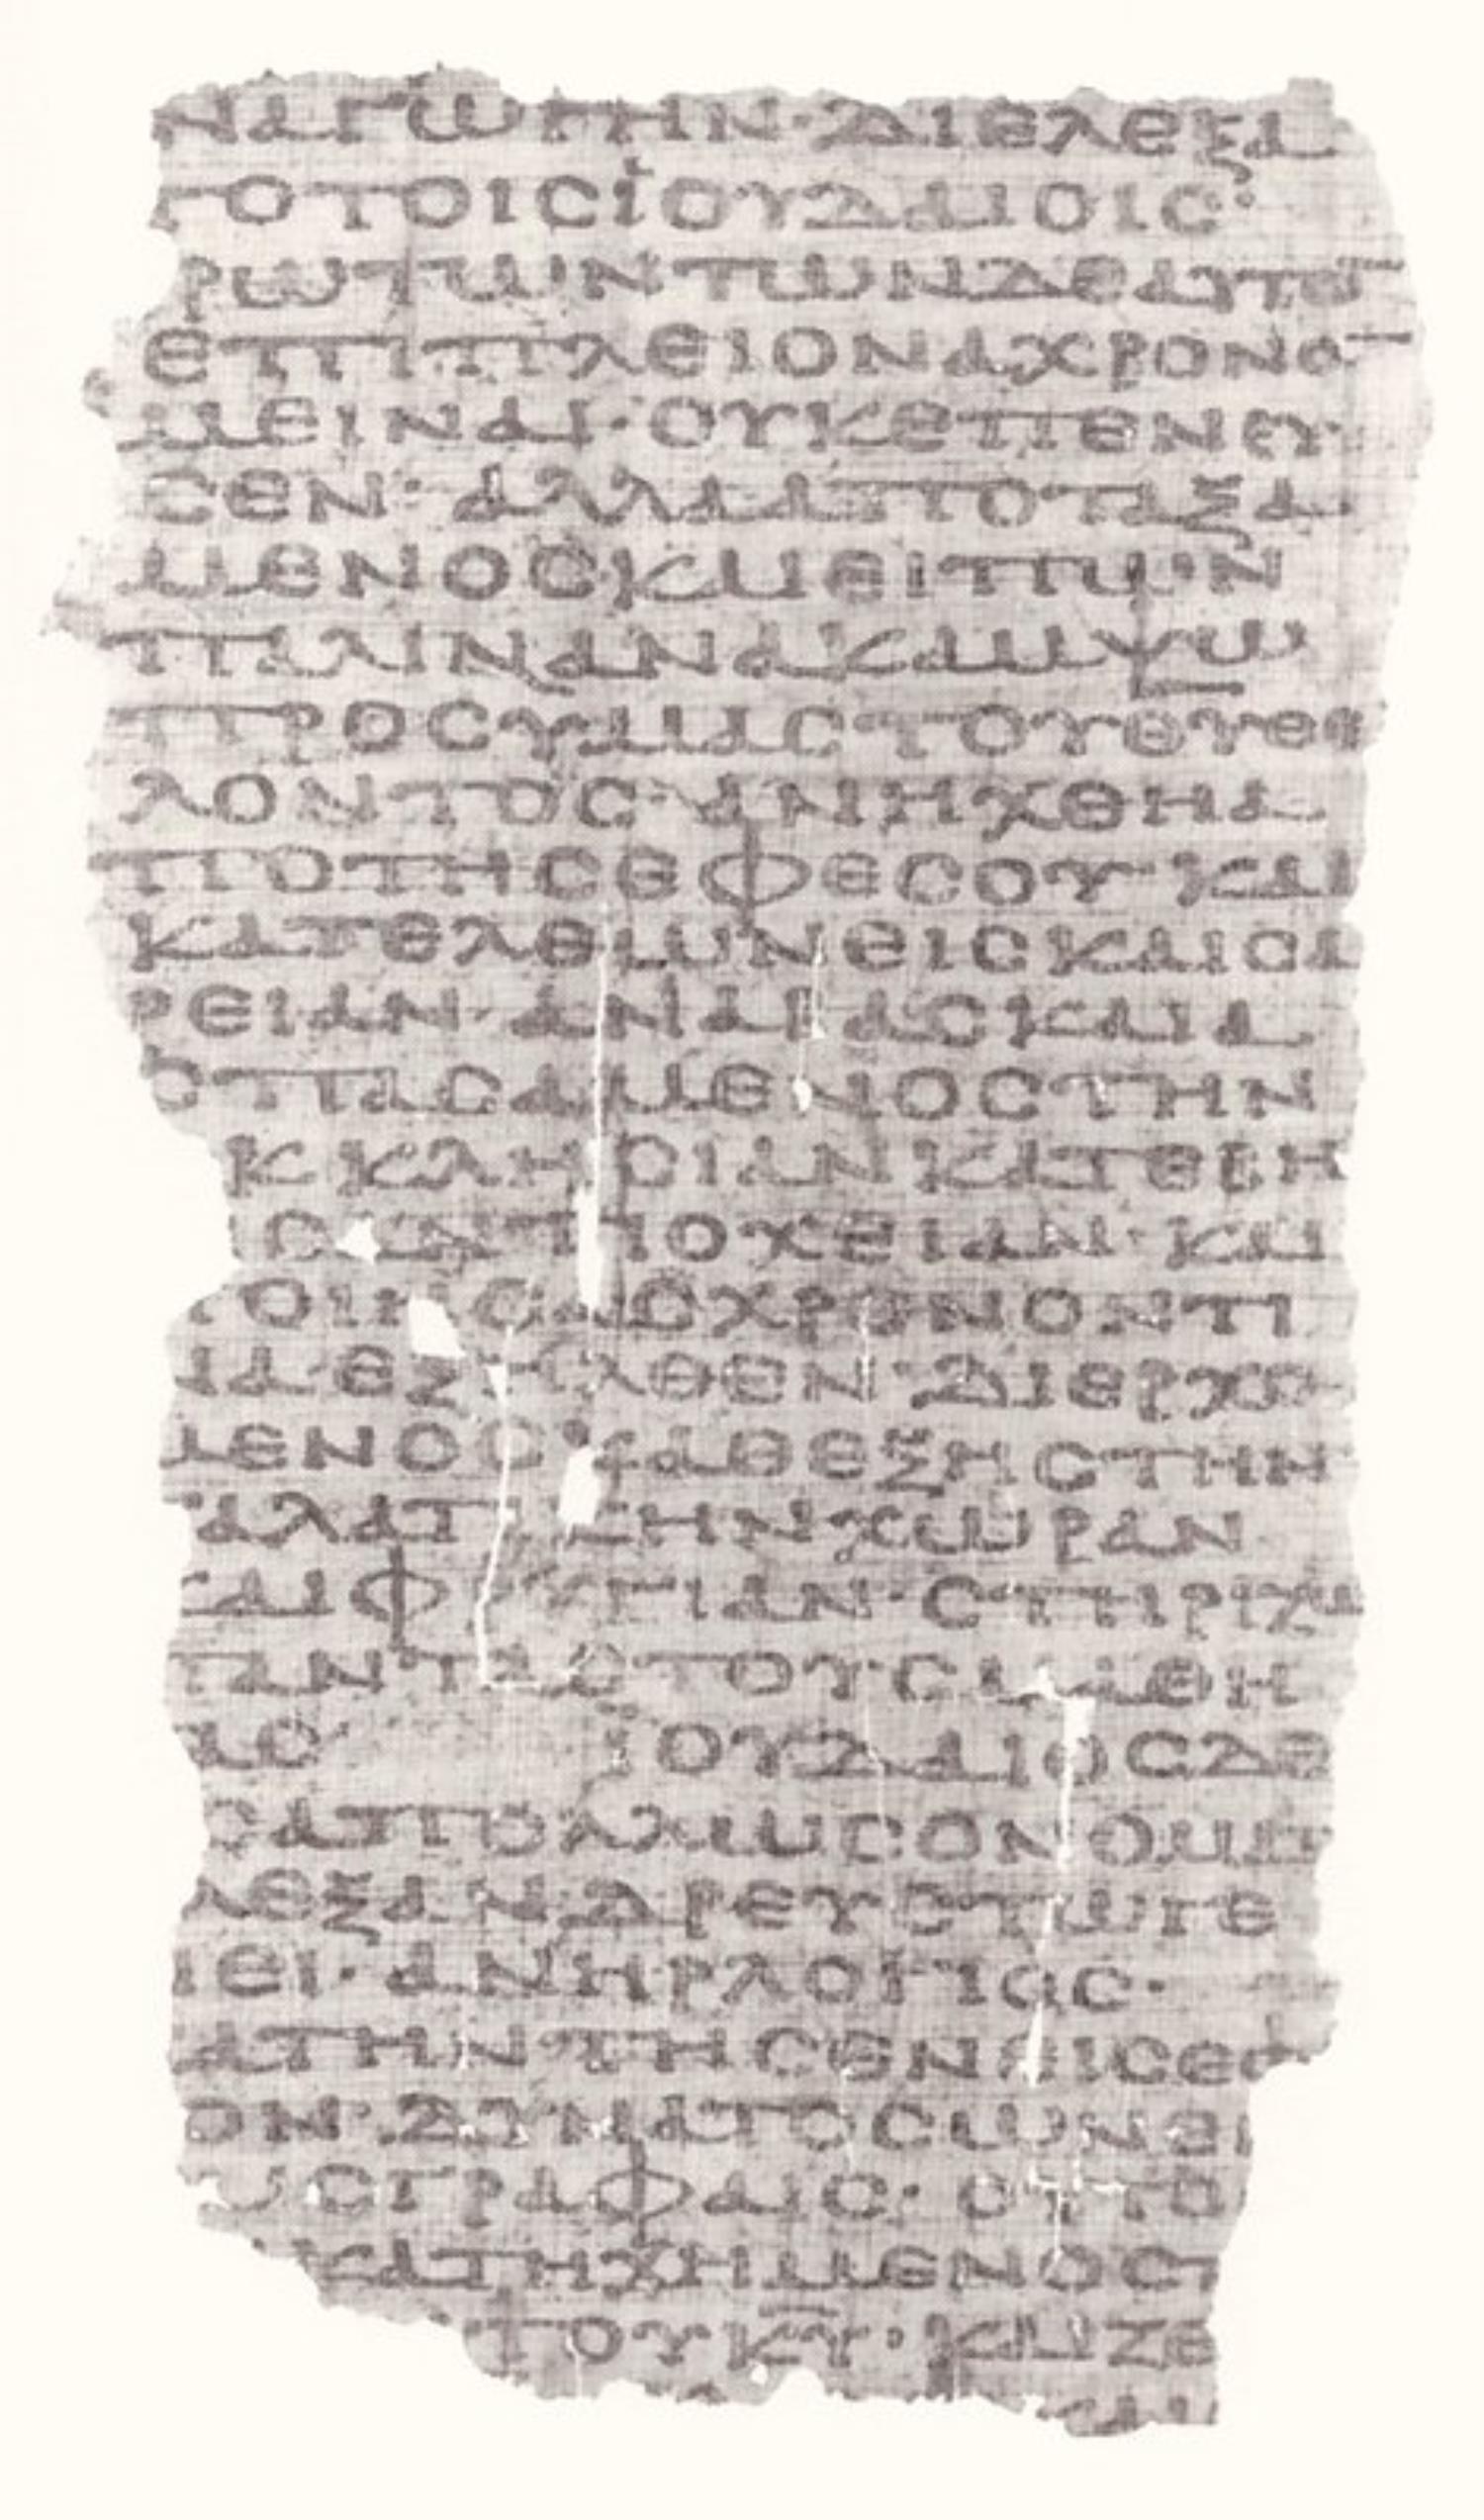 ΝΑΓΩΓΗΝ· ΔΙΕΛΕΞΑ
ΤΟ ΤΟΙϹ ΪΟΥΔΑΙΟΙϹ·
ΡΩΤΩΝΤΩΝ ΔΕ ΑΥΤΩ̅
ΕΠΙ ΠΛΕΙΟΝΑ ΧΡΟΝΟ̅
ΜΕΙΝΑΙ· ΟΥΚ ΕΠΕΝΕΥ
ϹΕΝ· ΑΛΛΑ ΑΠΟΤΑΞΑ
ΜΕΝΟϹ ΚΑΙ ΕΙΠΩΝ
ΠΑΛΙΝ ΑΝΑΚΑΜΨΩ
ΠΡΟϹ ΥΜΑϹ ΤΟΥ Θ̅Υ̅ ΘΕ
ΛΟΝΤΟϹ· ΑΝΗΧΘΗ Α
ΠΟ ΤΗϹ ΕΦΕϹΟΥ· ΚΑΙ
ΚΑΤΕΛΘΩΝ ΕΙϹ ΚΑΙϹΑ
ΡΕΙΑΝ· ΑΝΑΒΑϹ ΚΑΙ Α
ϹΠΑϹΑΜΕΝΟϹ ΤΗΝ
ΚΚΛΗϹΙΑΝ ΚΑΤΕΒΗ
Ϲ ΑΝΤΙΟΧΕΙΑΝ· ΚΑΙ
ΠΟΙΗϹΑϹ ΧΡΟΝΟΝ ΤΙ
ΝΑ ΕΞΗΛΘΕΝ· ΔΙΕΡΧΟ
ΜΕΝΟϹ ΚΑΘΕΞΗϹ ΤΗΝ
ΓΑΛΑΤΙΚΗΝ ΧΩΡΑΝ
ΚΑΙ ΦΡΥΓΙΑΝ· ϹΤΗΡΙΖΩ
ΠΑΝΤΑϹ ΤΟΥϹ ΜΑΘΗ
ΤΑϹ ΪΟΥΔΑΙΟϹ ΔΕ
ΑΠΟΛΛΩϹ ΟΝΟΜΑΤΙ
ΛΕΞΑΝΔΡΕΥϹ ΤΩ ΓΕ
ΝΕΙ· ΑΝΗΡ ΛΟΓΙΟϹ·
ΑΤΗΝΤΗϹΕΝ ΕΙϹ ΕΦ
ΟΝ· ΔΥΝΑΤΟϹ ΩΝ Ε
ΓΡΑΦΑΙϹ· ΟΥΤΟ
ΚΑΤΗΧΗΜΕΝΟϹ
ΤΟΥ Κ̅Υ̅· ΚΑΙ ΖΕ